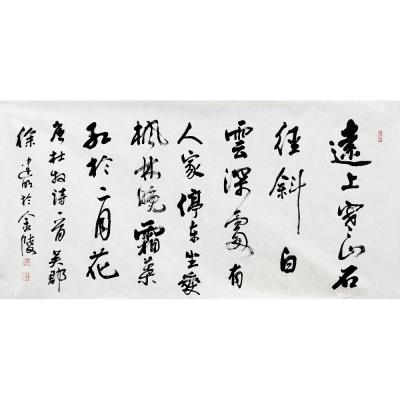 遠上寒山石
径斜白
雲深處有
人家停车坐愛
楓林晚霜葉
红於二月花
唐杜牧诗一首吴郡
徐建明於金陵